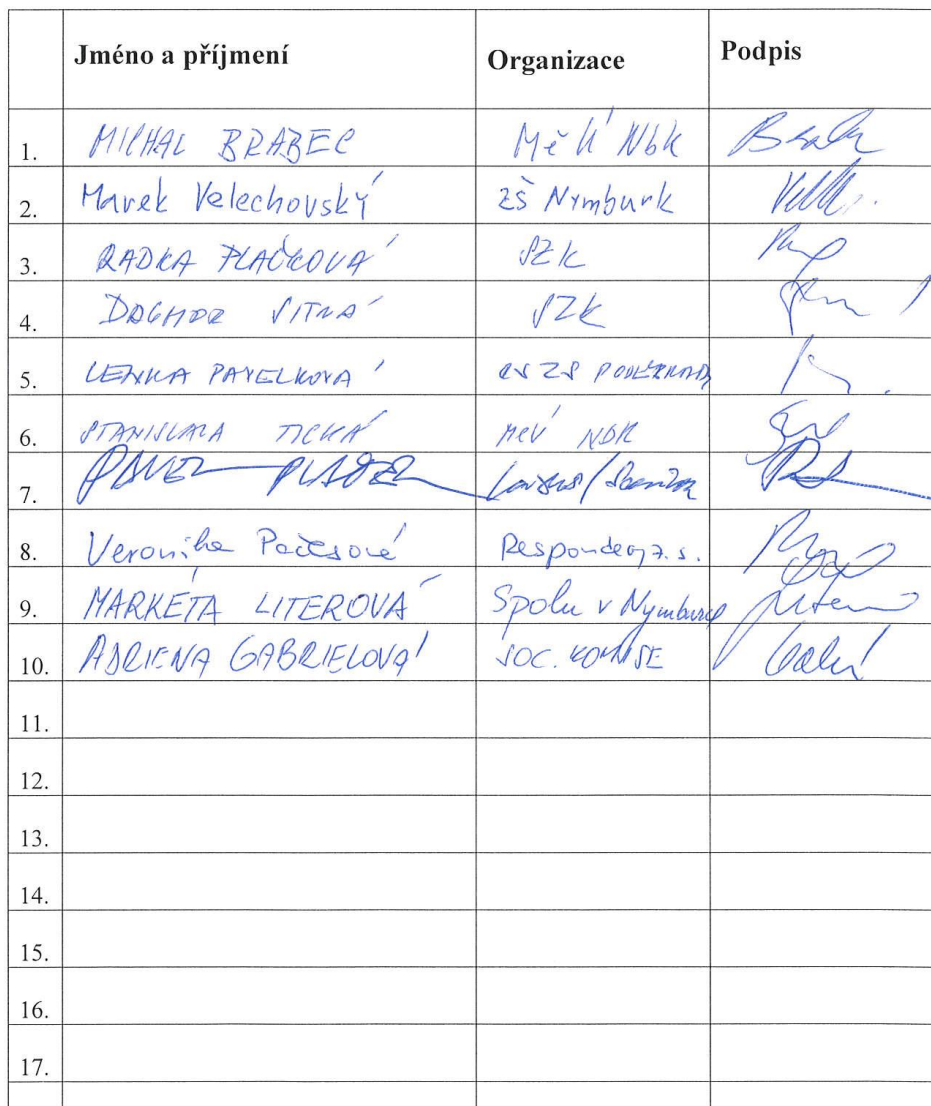 Jméno a příjmení Organizace Podpis
1. MICHAL BRABEC MěÚ Nbk
2. Marek Velechovský ZŠ Nymburk
3. RADKA PLAČKOVÁ SZK
4. DAGMAR SITNÁ SZK
5. LENKA PAVELKOVÁ
6. STANISLAVA TICKÁ MěÚ NBK
7. PAVEL
8. Veronika Respondeo, z. s.
9. MARKÉTA LITEROVÁ Spolu v Nymburce
10. ADRIENA GABRIELOVÁ SOC. KOMISE
11.
12.
13.
14.
15.
16.
17.